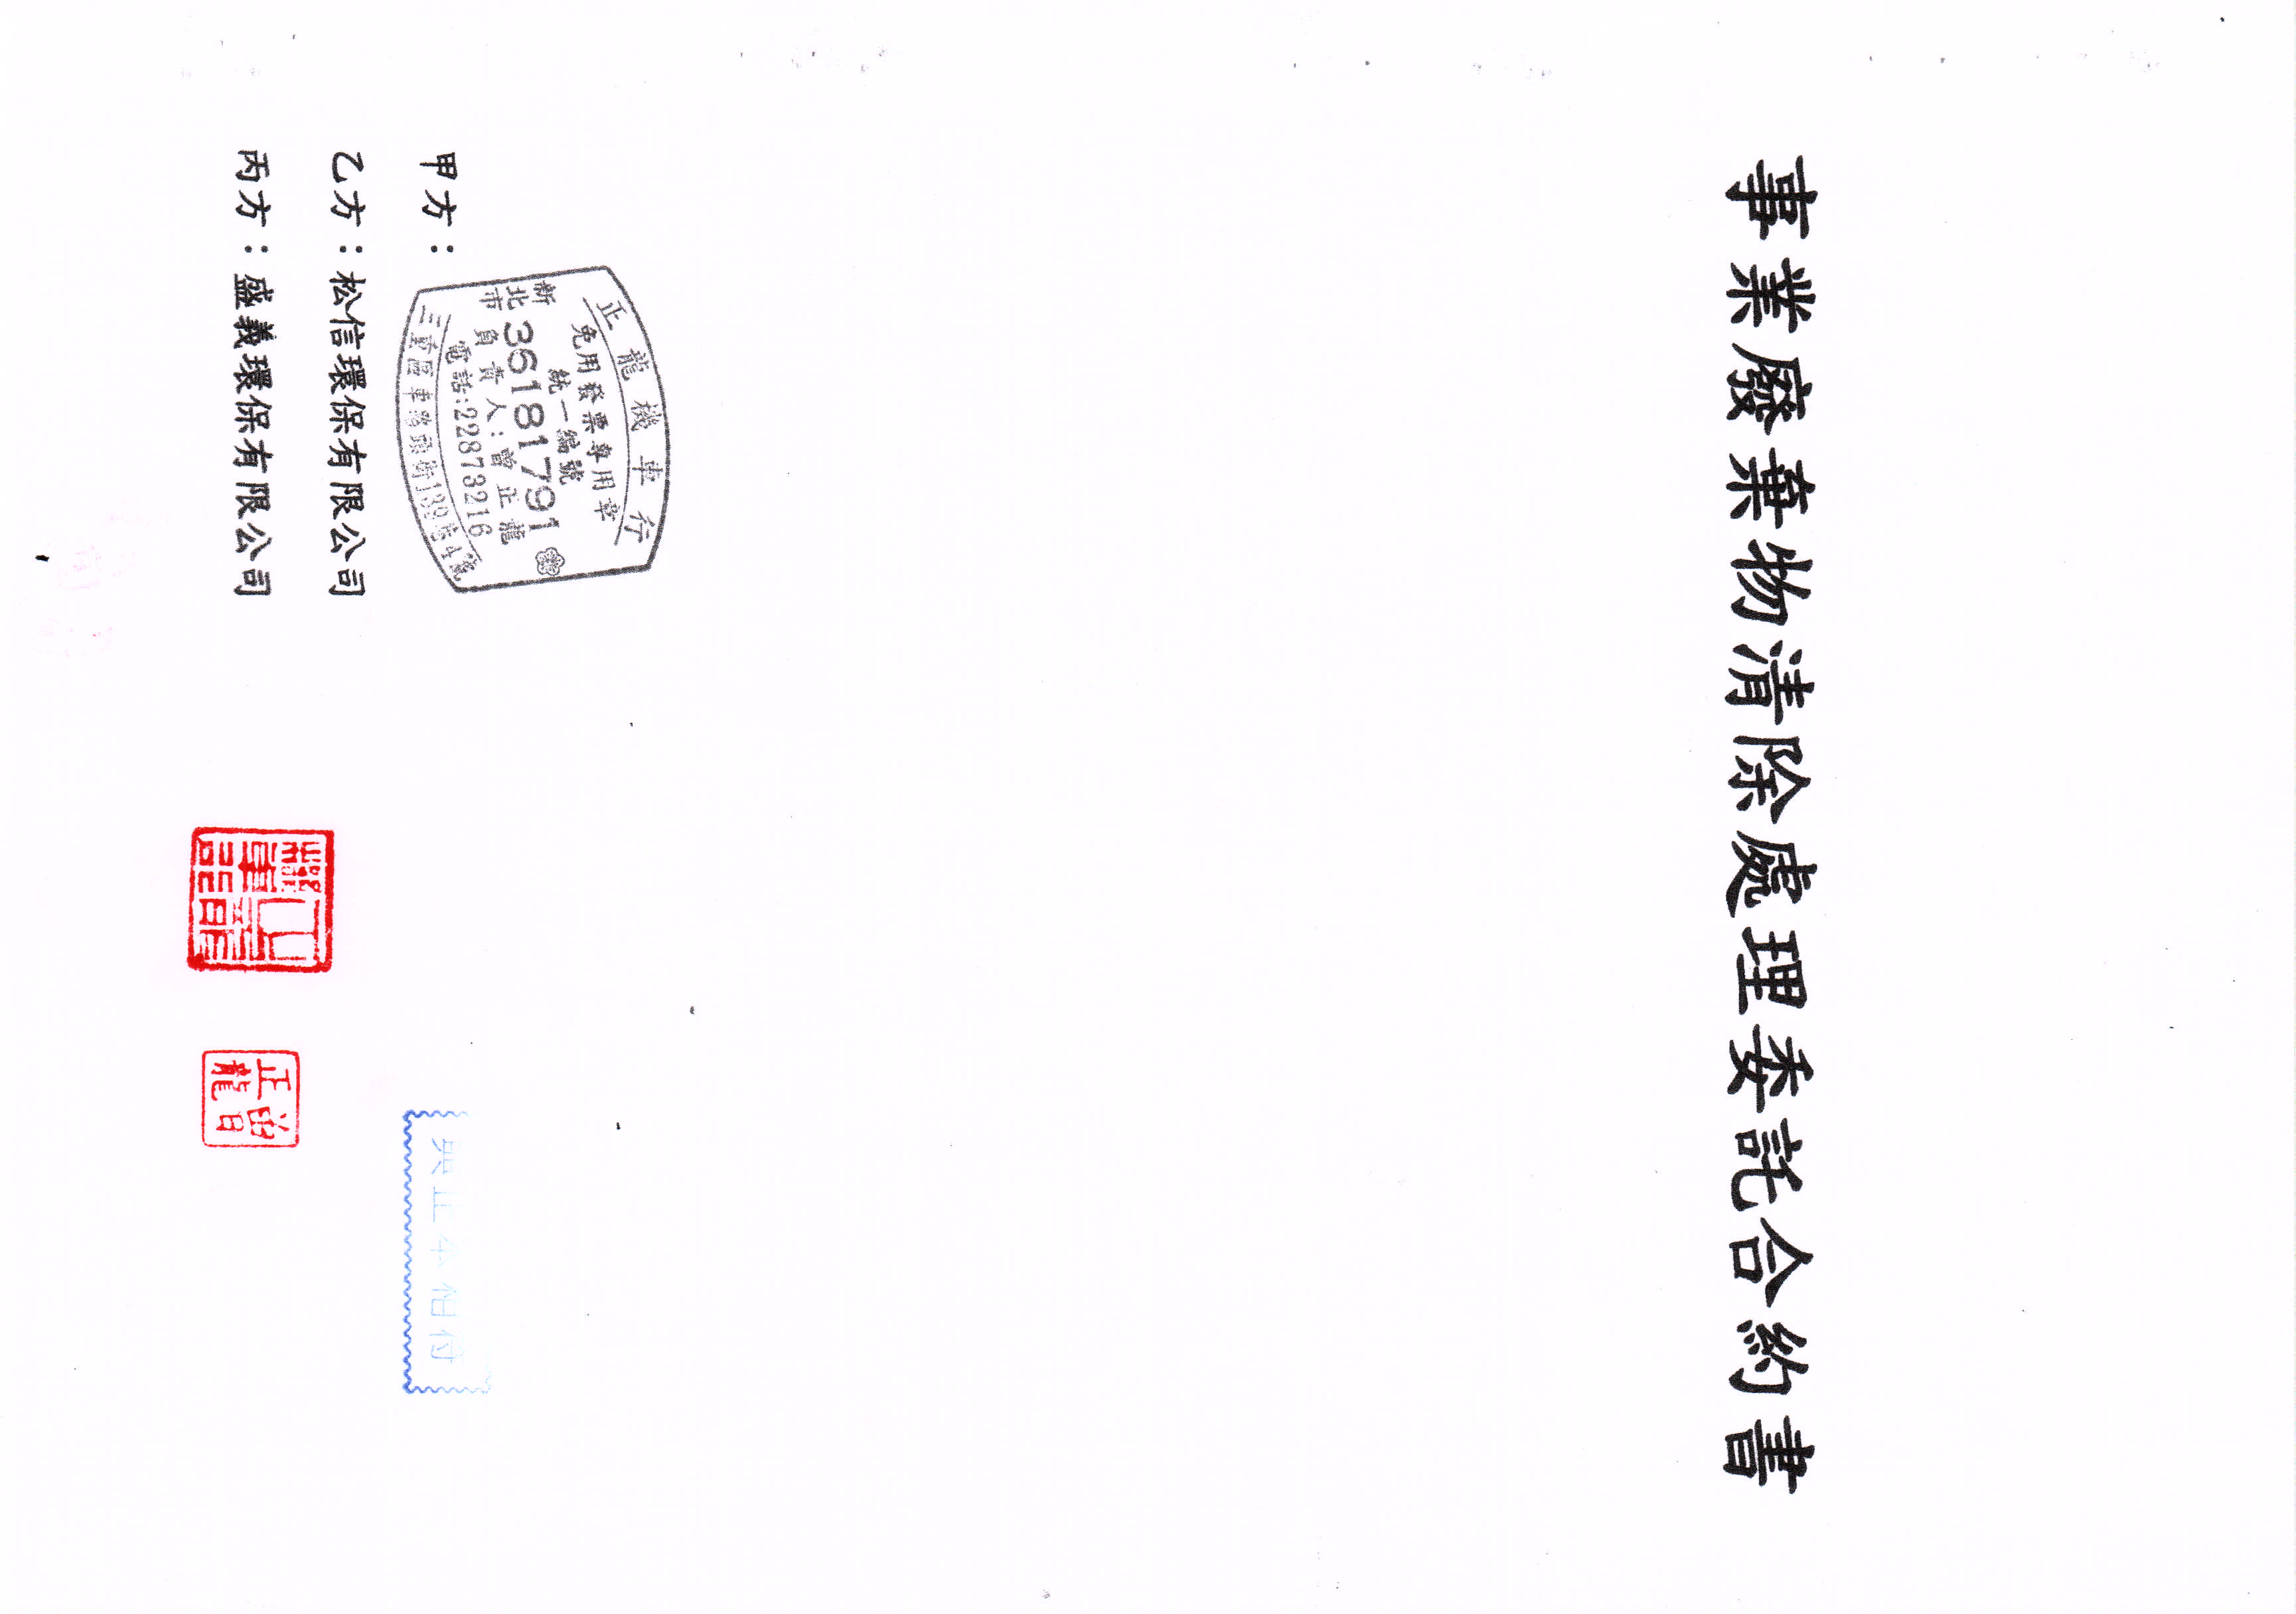 事業廢棄物清除處理委託合約書
甲方：
正龍機車行
免用發票專用章
統一編號
新北市
36181791
負責人：曾正龍
電話：22873216
乙方：松信環保有限公司
丙方：盛義環保有限公司
正龍
與正本相符